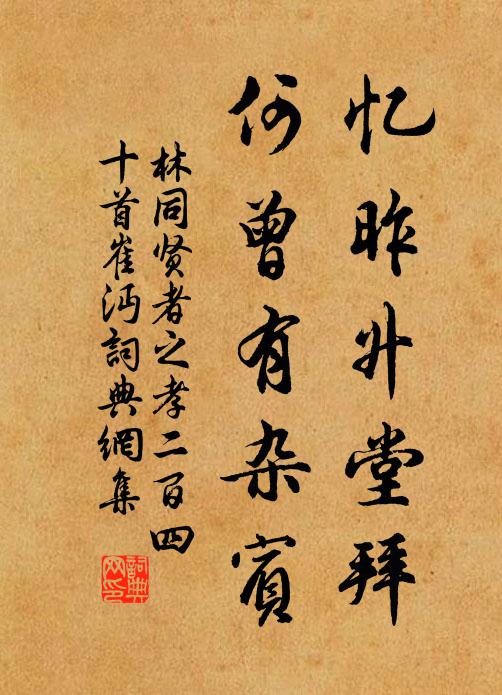 忆昨升堂拜
何曾有杂宾
林同贤者之孝二百四
十首崔沔詞典網集
詞典網印